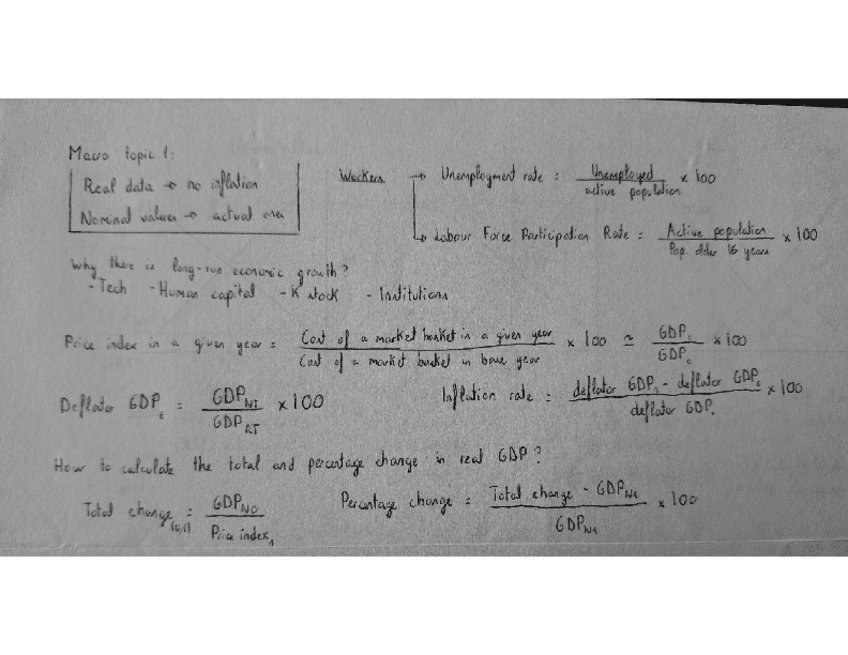 Macro topic 1:
Real data → no inflation
Nominal values → actual one
Workers → Unemployment rate = Unemployed / active population × 100
→ Labour Force Participation Rate = Active population / Pop. older 16 years × 100
Why there is long-run economic growth?
- Tech - Human capital - K stock - Institutions
Price index in a given year = Cost of a market basket in a given year / Cost of a market basket in base year × 100 ≃ GDP₁ / GDP₀ × 100
Deflator GDPₜ = GDP NT / GDP RT × 100
Inflation rate = deflator GDP₁ - deflator GDP₀ / deflator GDP₀ × 100
How to calculate the total and percentage change in real GDP?
Total change (0,1) = GDP N0 / Price index₁
Percentage change = Total change - GDP N1 / GDP N1 × 100